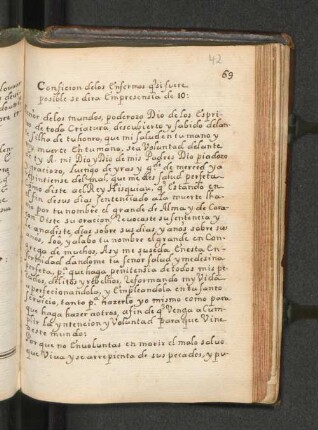 42
69
Conficion delos Enfermos q̃ si fuere
posible se dira Empresensia de 10:
de los mundos, poderoso Dio de los Espri-
de toda Criatura descubierto y sabido delan-
Silho de tu honra, que mi salud en tu mano y
muerte En tu mano, sea Voluntad delante
Rey R. mi Dio y Dio de mis Padres Dio piadozo
gracioso, Luengo de yras y g.ᵉ de merced ya
que me des salud perfeta
como diste al Rey Hisquiau, q.ᵉ Estando en
fin desus dias sentensiado ala muerte lha-
por tu nombre el grande de Alma y de Cora-
Oiste su oracion, Revocaste su sentencia y
anadiste, dias sobre sus dias, y anos sobre sus
anos, Soy, y alabo tu nombre el grande en Con-
de muchos, Asy me suseda Enesta En-
fermidad dandome tu Señor salud y medesina
perfeta, p.ᵃ que haga penitensia de todos mis pe-
delitos y rebelhos, Reformando my Vida
y perfecionandola, y Empleandola en tu santo
servicio, tanto p.ᵃ hazerlo yo mismo como para
que haga haser aotros, afin de q̃ Venga a Cum-
plir la yntencion y Voluntad para que Vine
este mundo:
Porque no Envoluntas en morir el malo salvo
que Viva y se arrepienta de sus pecados, y pu-